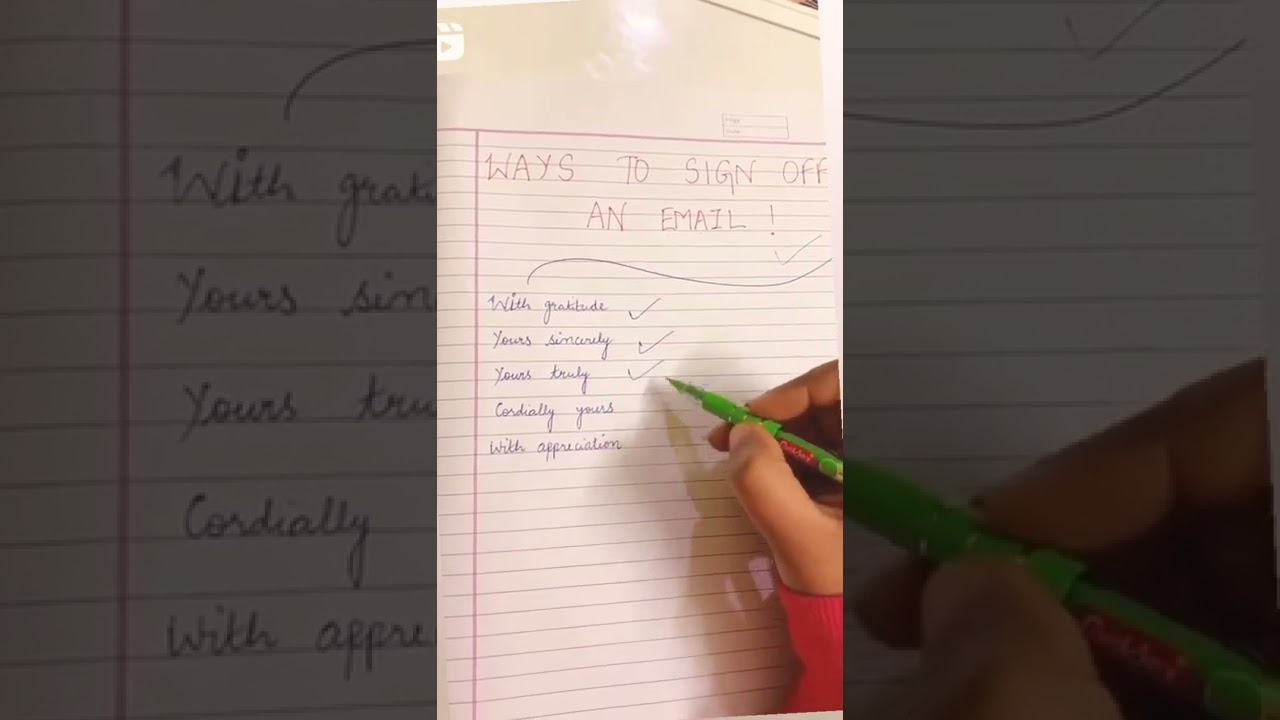 WAYS TO SIGN OFF
AN EMAIL !
With gratitude
Yours sincerely
Yours truly
Cordially yours
With appreciation